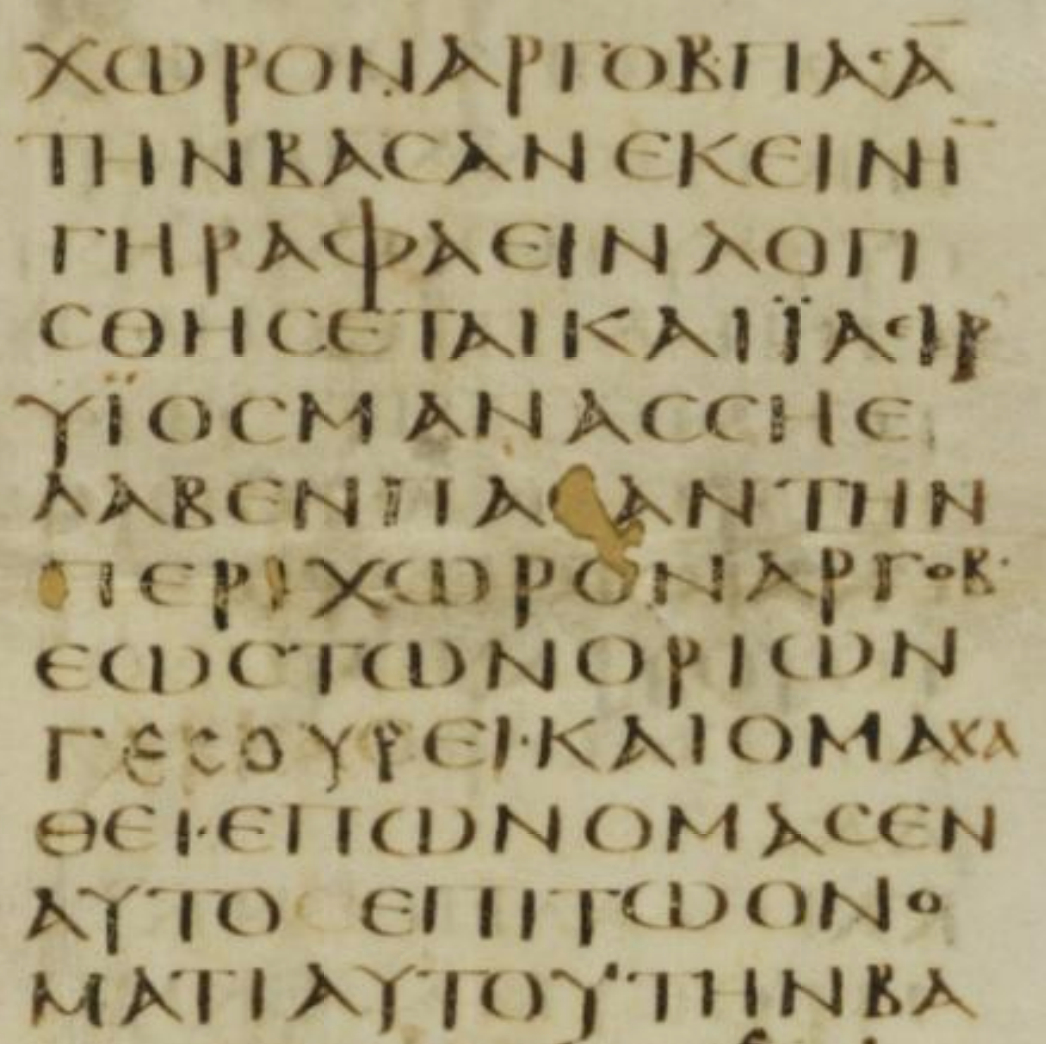 ΧΩΡΟΝΑΡΓΟΒ·ΠΑϹΑ̅
ΤΗΝΒΑϹΑΝΕΚΕΙΝΗ̅
ΓΗΡΑΦΑΕΙΝΛΟΓΙ
ϹΘΗϹΕΤΑΙΚΑΙΪΑΕΙΡ
ΥΪΟϹΜΑΝΑϹϹΗΕ
ΛΑΒΕΝΠΑϹΑΝΤΗΝ
ΠΕΡΙΧΩΡΟΝΑΡΓΟΒ·
ΕΩϹΤΩΝΟΡΙΩΝ
ΓΕϹΟΥΡΕΙ·ΚΑΙΟΜΑΧΑ
ΘΕΙ·ΕΠΩΝΟΜΑϹΕΝ
ΑΥΤΟϹΕΠΙΤΩΟΝΟ
ΜΑΤΙΑΥΤΟΥ·ΤΗΝΒΑ